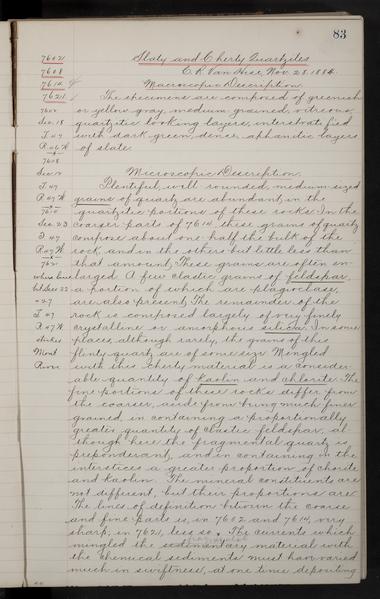 83
7602
7608
7614
7621
Slaty and Cherty Quartzites
C. R. Van Hise, Nov. 28, 1884.
Macroscopic Description.
The specimens are composed of greenish
or yellow gray, medium grained, vitreous
quartzitic looking layers, interstratified
with dark green, dense, aphanitic layers
of slate.
7602
Sec. 18
T 47
R 46 W
7608
Sec.
T 47
R 47 W
Sec. 23
T 47
R 47 W
7621
where line
bet Secs 22
+ 27
T 47
R 47 W
strikes
Mont
River
Microscopic Description.
Plentiful, well rounded, medium sized
grains of quartz are abundant, in the
quartzitic portions of these rocks. In the
coarser parts of 7614, these grains of quartz
compose about one half the bulk of the
rock, and in the others but little less than
that amount. These grains are often en-
larged. A few clastic grains of feldspar,
a portion of which are plagioclase,
are also present. The remainder of the
rock is composed largely of very finely
crystalline or amorphous silica. In some
places, although rarely, the grains of this
flinty quartz are of some size. Mingled
with this cherty material is a consider-
able quantity of kaolin and chlorite. The
fine portions of these rocks differ from
the coarser, aside from being much finer
grained, in containing a proportionally
greater quantity of clastic feldspar, al
though here the fragmental quartz is
preponderant, and in containing in the
interstices a greater proportion of chorite
and kaolin. The mineral constituents are
not different, but their proportions are.
The lines of definition between the coarse
and fine parts is, in 7602 and 7614, very
sharp, in 7621, less so. The currents which
mingled the sedimentary material with
the chemical sediments must have varied
much in swiftness, at one time depositing